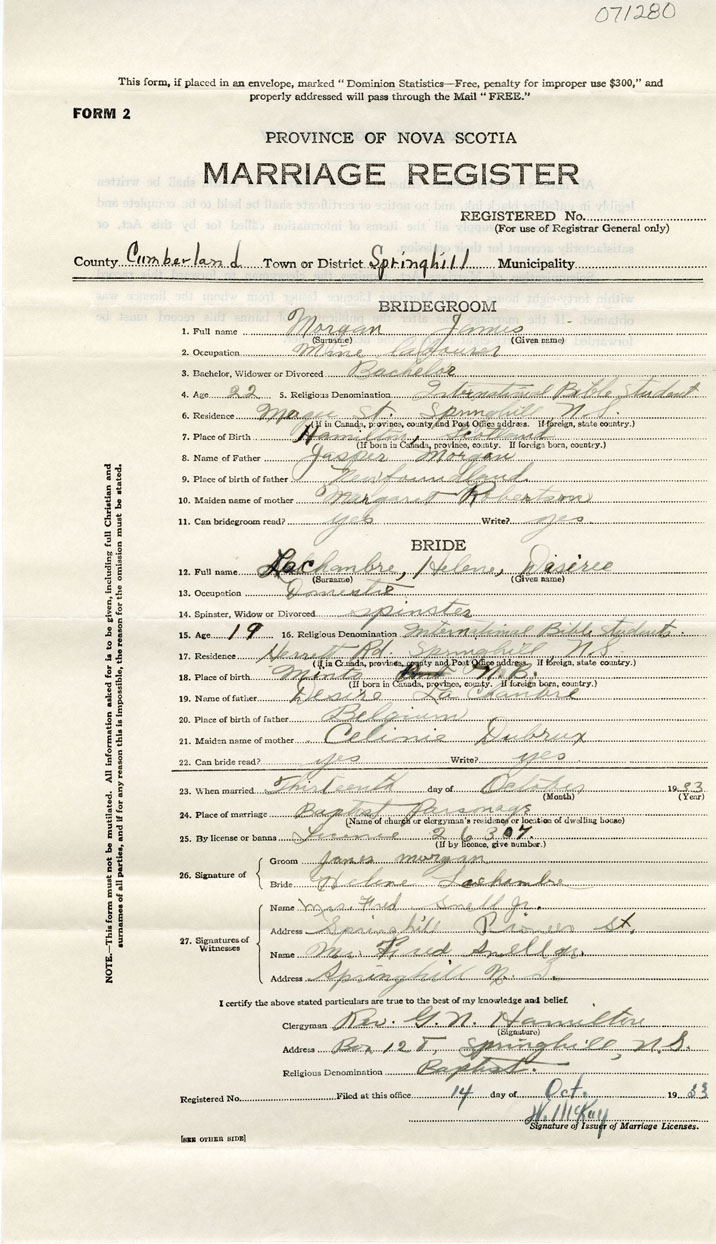 071280
This form, if placed in an envelope, marked "Dominion Statistics—Free, penalty for improper use $300," and
properly addressed will pass through the Mail "FREE."
FORM 2
PROVINCE OF NOVA SCOTIA
MARRIAGE REGISTER
REGISTERED No.
(For use of Registrar General only)
County Cumberland Town or District Springhill Municipality
BRIDEGROOM
1. Full name Morgan James
(Surname) (Given name)
2. Occupation Mine labourer
3. Bachelor, Widower or Divorced Bachelor
4. Age 22 5. Religious Denomination International Bible Student
6. Residence Magee St. Springhill N.S.
(If in Canada, province, county and Post Office address. If foreign, state country.)
7. Place of Birth Hamilton, Scotland
(If born in Canada, province, county. If foreign born, country.)
8. Name of Father Jasper Morgan
9. Place of birth of father Newfoundland
10. Maiden name of mother Margaret Robertson
11. Can bridegroom read? yes Write? yes
BRIDE
12. Full name Lachambre, Helene, Desiree
(Surname) (Given name)
13. Occupation Domestic
14. Spinster, Widow or Divorced spinster
15. Age 19 16. Religious Denomination International Bible Students.
17. Residence Herrett Rd. Springhill N.S.
(If in Canada, province, county and Post Office address. If foreign, state country.)
18. Place of birth Minto N.B.
(If born in Canada, province, county. If foreign born, country.)
19. Name of father Desire La Chambre
20. Place of birth of father Belgium
21. Maiden name of mother Celinie Dubrux
22. Can bride read? yes Write? yes
23. When married Thirteenth day of October 1933
(Month) (Year)
24. Place of marriage Baptist Parsonage
(Name of church or clergyman's residence or location of dwelling house)
25. By license or banns License 26307
(If by licence, give number.)
26. Signature of
Groom James Morgan
Bride Helene Lachambre
27. Signatures of Witnesses
Name Mrs. Fred Snell Jr.
Address Springhill Pioneer St.
Name Mr. Fred Snell Jr.
Address Springhill N.S.
I certify the above stated particulars are true to the best of my knowledge and belief.
Clergyman Rev. G.N. Hamilton
(Signature)
Address Box 125, Springhill, N.S.
Religious Denomination Baptist.
Registered No. Filed at this office 14 day of Oct. 1933
W. McKay
Signature of Issuer of Marriage Licenses.
[SEE OTHER SIDE]
NOTE.—This form must not be mutilated. All information asked for is to be given, including full Christian and
surnames of all parties, and if for any reason this is impossible, the reason for the omission must be stated.